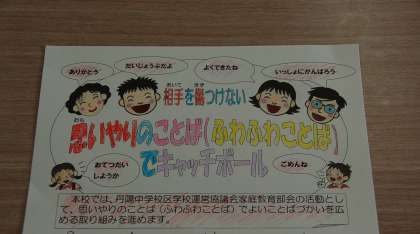 ありがとう
だいじょうぶだよ
よくできたね
いっしょにがんばろう
相手を傷つけない
あいて
きず
思いやりのことば(ふわふわことば)
おも
でキャッチボール
おてつだい
しようか
ごめんね
本校では、丹陽中学校区学校運営協議会家庭教育部会の活動とし
て、思いやりのことば(ふわふわことば)でよいことばづかいを広
める取り組みを進めます。